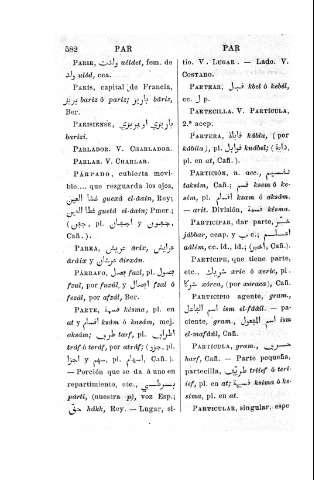 582 PAR
PARIR, ولدت uéldet, fem. de
ولد uéld, cea.
PARIS, capital de Francia,
باريز bariz ó pariz; باريز báris,
Ber.
PARISIENSE, باريزي ó باريزي
barizi.
PARLADOR. V. CHARLADOR.
PARLAR. V. CHARLAR.
PÁRPADO, cubierta movi-
ble.... que resguarda los ojos,
غطا العين guexá el-áain, Rey;
غطا العين guetá el-áain; Pmer.;
جفن (pl. اجفان y جفون,
Cañ.).
PARRA, عريش árix, عرايش
áráix y عرشان áirxán.
PÁRRAFO, فصل fzal, pl. فصول
fzul, por fuzúl, y افصال ó
fezál, por afzál, Ber.
PARTE, قسمة késma, pl. en
at y اقسام ksám ó knsám, mej.
aksám; طرف tarf, pl. اطراف
tráf ó teráf, por atráf; (جز, pl.
اجزا y سهم, pl. اسهام, Cañ.).
— Porcion que se da á uno en
repartimiento, etc., برطي,
párti, (nuestra p), voz Esp.;
حق hákk, Rey. — Lugar, si-
PAR
tio. V. LUGAR. — Lado. V.
COSTADO.
PARTEAR, قبل kbel ó kebál,
cc. ل p.
PARTECILLA. V. PARTÍCULA,
2.ª acep.
PARTERA, قابلة kábla, (por
kábila), pl. قوابل kuábel; (داية,
pl. en at, Cañ.).
PARTICION, a. ac., تقسيم
taksim, Cañ.; قسم ksam ó ke-
sám, pl. اقسام ksam ó aksám.
— arit. Division, قسمة késma.
PARTICIPAR, dar parte, خبر
jábbar, ceap. y ب c.; اعلم
aálem, cc. id., id.; (اخبر, Cañ.).
PARTÍCIPE, que tiene parte,
etc., شريك xric ó xeric, pl.
شركا xórca, (por xoraca), Cañ.
PARTICIPIO agente, gram.,
اسم الفاعل ism el-fáail. — pa-
ciente, gram., اسم المفعول ism
el-mafáúl, Cañ.
PARTÍCULA, gram., حرف
harf, Cañ. — Parte pequeña,
partecilla, طريف tráief ó teri-
ief, pl. en at; قسيمة ksima ó ke-
sima, pl. en at.
PARTICULAR, singular, espe